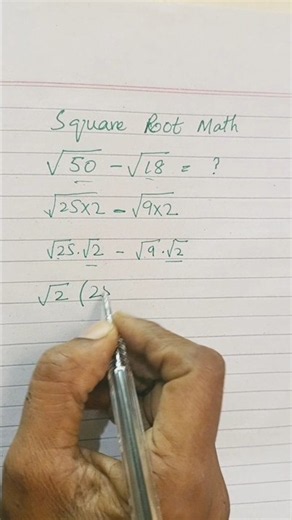 Square Root Math
√50 - √18 = ?
√25×2 - √9×2
√25·√2 - √9·√2
√2 (25